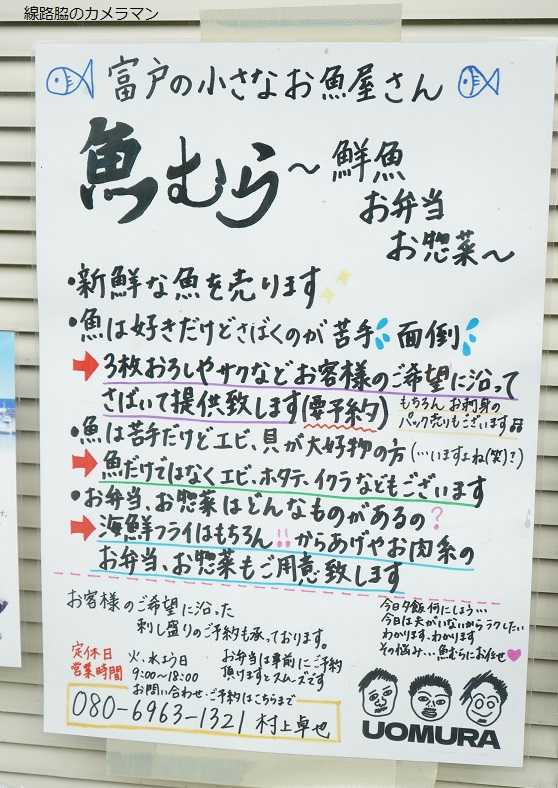 線路脇のカメラマン
富戸の小さなお魚屋さん
魚むら
～鮮魚
お弁当
お惣菜～
・新鮮な魚を売ります
・魚は好きだけどさばくのが苦手 面倒
3枚おろしやサクなどお客様のご希望に沿って
さばいて提供致します(要予約)
もちろんお刺身の
パック売りもございます
・魚は苦手だけどエビ、貝が大好物の方(…いますよね(笑)？)
魚だけではなくエビ、ホタテ、イクラなどもございます
・お弁当、お惣菜はどんなものがあるの？
海鮮フライはもちろん!!からあげやお肉系の
お弁当、お惣菜もご用意致します
お客様のご希望に沿った
刺し盛りのご予約も承っております。
定休日 火、水よう日
営業時間 9:00～18:00
お弁当は事前にご予約
頂けますとスムーズです
お問い合わせ・ご予約はこちらまで
080-6963-1321 村上卓也
今日夕飯何にしよう…
今日は夫がいないからラクしたい
わかります、わかります
その悩み…魚むらにお任せ
UOMURA